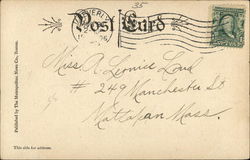 35
Post Card
Miss A. Leonice Lord
# 249 Manchester St
Mattapan Mass.
Published by The Metropolitan News Co., Boston.
This side for address.